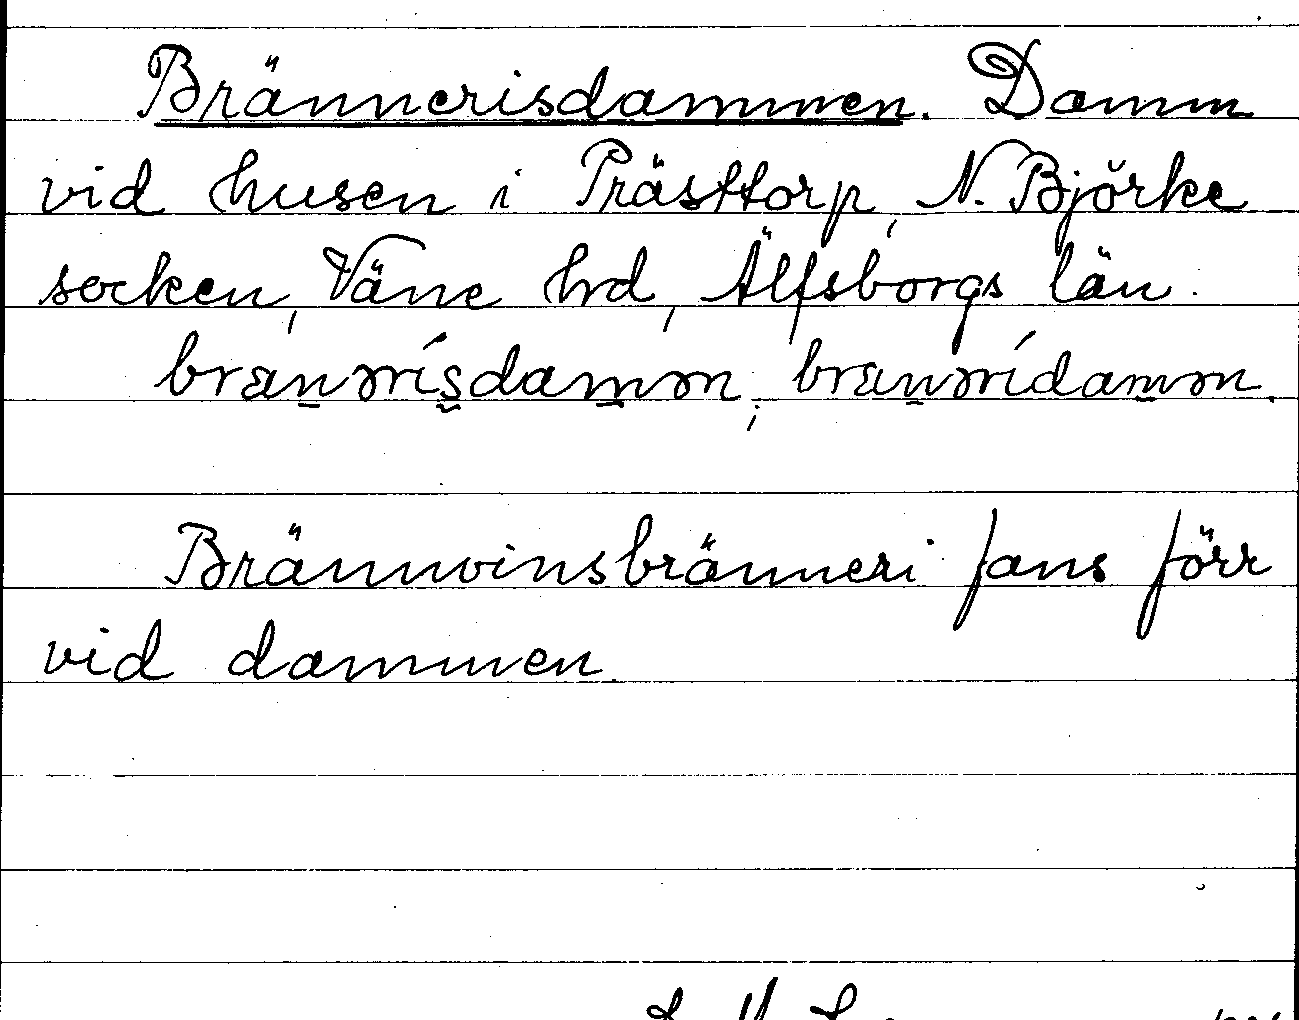 Brännerisdammen. Damm
vid husen i Prästtorp, N. Björke
socken, Väne hd, Älfsborgs län.
brænərisdamən; brænəridamən.
Brännvinsbränneri fans förr
vid dammen.